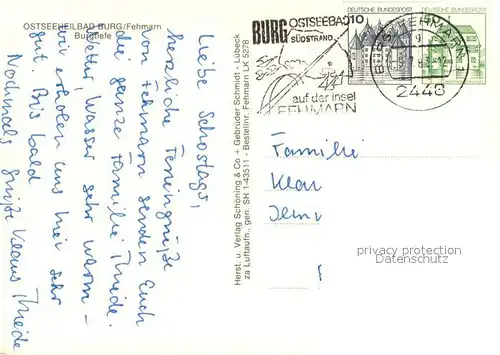 OSTSEEHEILBAD BURG/Fehmarn
Burgtiefe
Liebe Schostags,
herzliche Feriengrüße
von Fehmarn senden Euch
die ganze Familie Thiede.
Wetter, Wasser sehr warm -
wir erholen uns hier sehr
gut. Bis bald
Nochmals Grüße Klaus Thiede
Herst. u. Verlag Schöning & Co + Gebrüder Schmidt - Lübeck
za Luftaufn., gen. SH 1-43511 - Bestellnr. Fehmarn LK 5278
BURG OSTSEEBAD
SÜDSTRAND
auf der Insel
FEHMARN
10 DEUTSCHE BUNDESPOST
DEUTSCHE BUNDESPOST
2448
Familie
Klau
privacy protection
Datenschutz